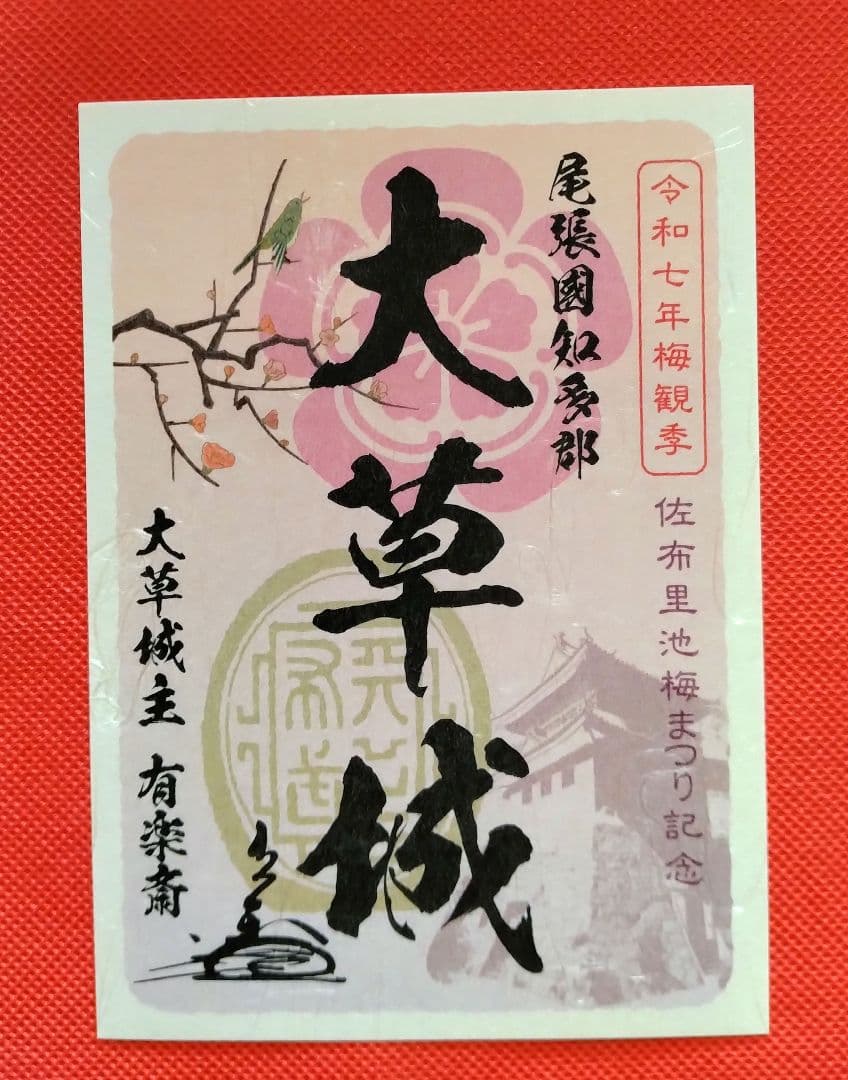 令和七年梅観季
佐布里池梅まつり記念
尾張國知多郡
大草城
大草城主 有楽斎